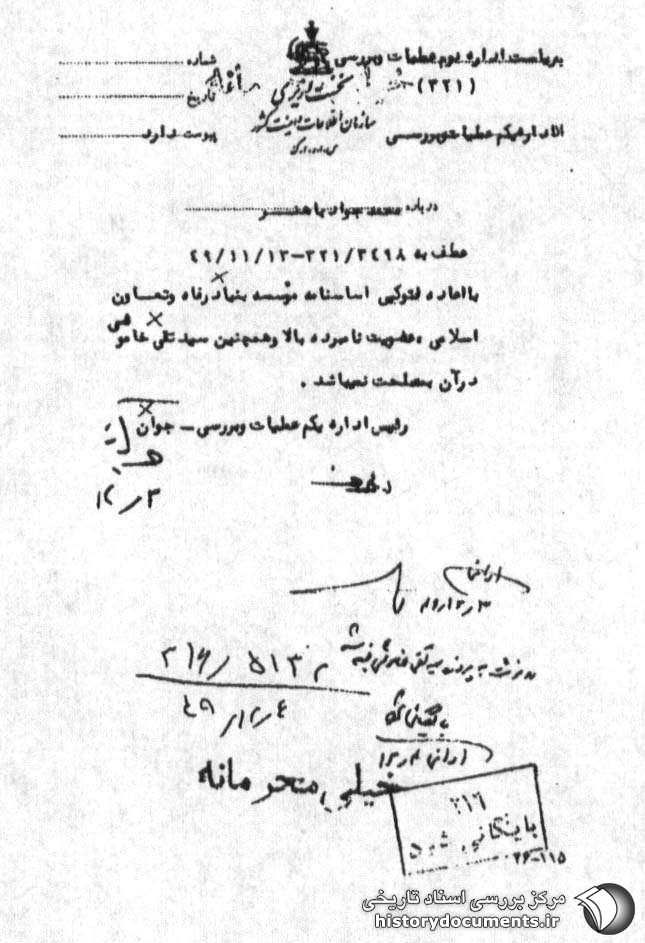 بریاست اداره سوم عملیات و بررسی
(۳۲۱)
شماره
تاریخ
نخست وزیری
سازمان اطلاعات و امنیت کشور
س.ا.و.ا.ک
از اداره یکم عملیات و بررسی
پیوست دارد
درباره محمد جواد باهنر
عطف به ۳۲۱/۳۴۹۸-۴۹/۱۱/۱۳
با اعاده فتوکپی اساسنامه مؤسسه بنیاد رفاه و تعاون
اسلامی عضویت نامبرده بالا و همچنین سید تقی خامو
شی
در آن بمصلحت نمیباشد .
رئیس اداره یکم عملیات و بررسی - جوان
۱۲/۳
۲۱۶/۵۱۳۲
۴۹/۱۲/۴
بایگانی شود
خیلی محرمانه
۲۱۶
بایگانی شود
۲۶-۱۱۵
مرکز بررسی اسناد تاریخی
historydocuments.ir